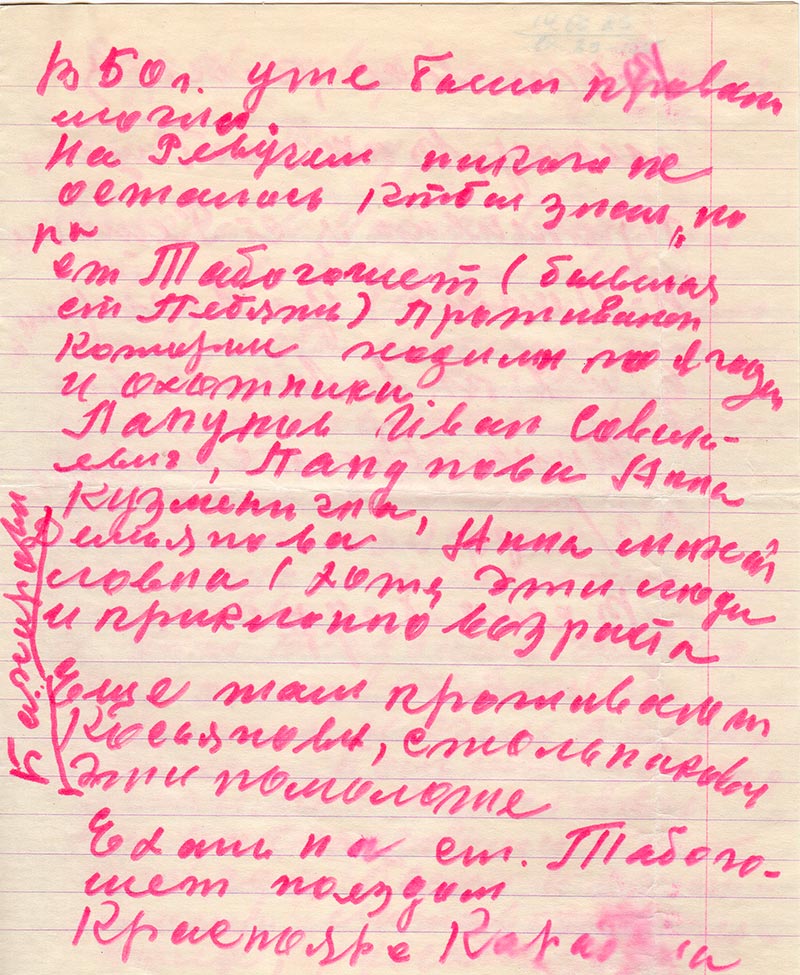 В 50 г. уже были провал
могли.
На Ревучем никого не
осталось кто был знал, но
на
ст Табогошет (бывшая
ст Лебяжи) проживают
которые ходили по ягоды
и охотники.
Лапунов Иван Савель-
евич, Лапунова Анна
Кузменична,
Демьянова Анна
ловна (хотя эти люди
и приклонно возраста
Еще там проживают
Касьяновы, Стольниковы
Эти помоложе
Ехать на ст. Табого-
шет поездом
Красноярс